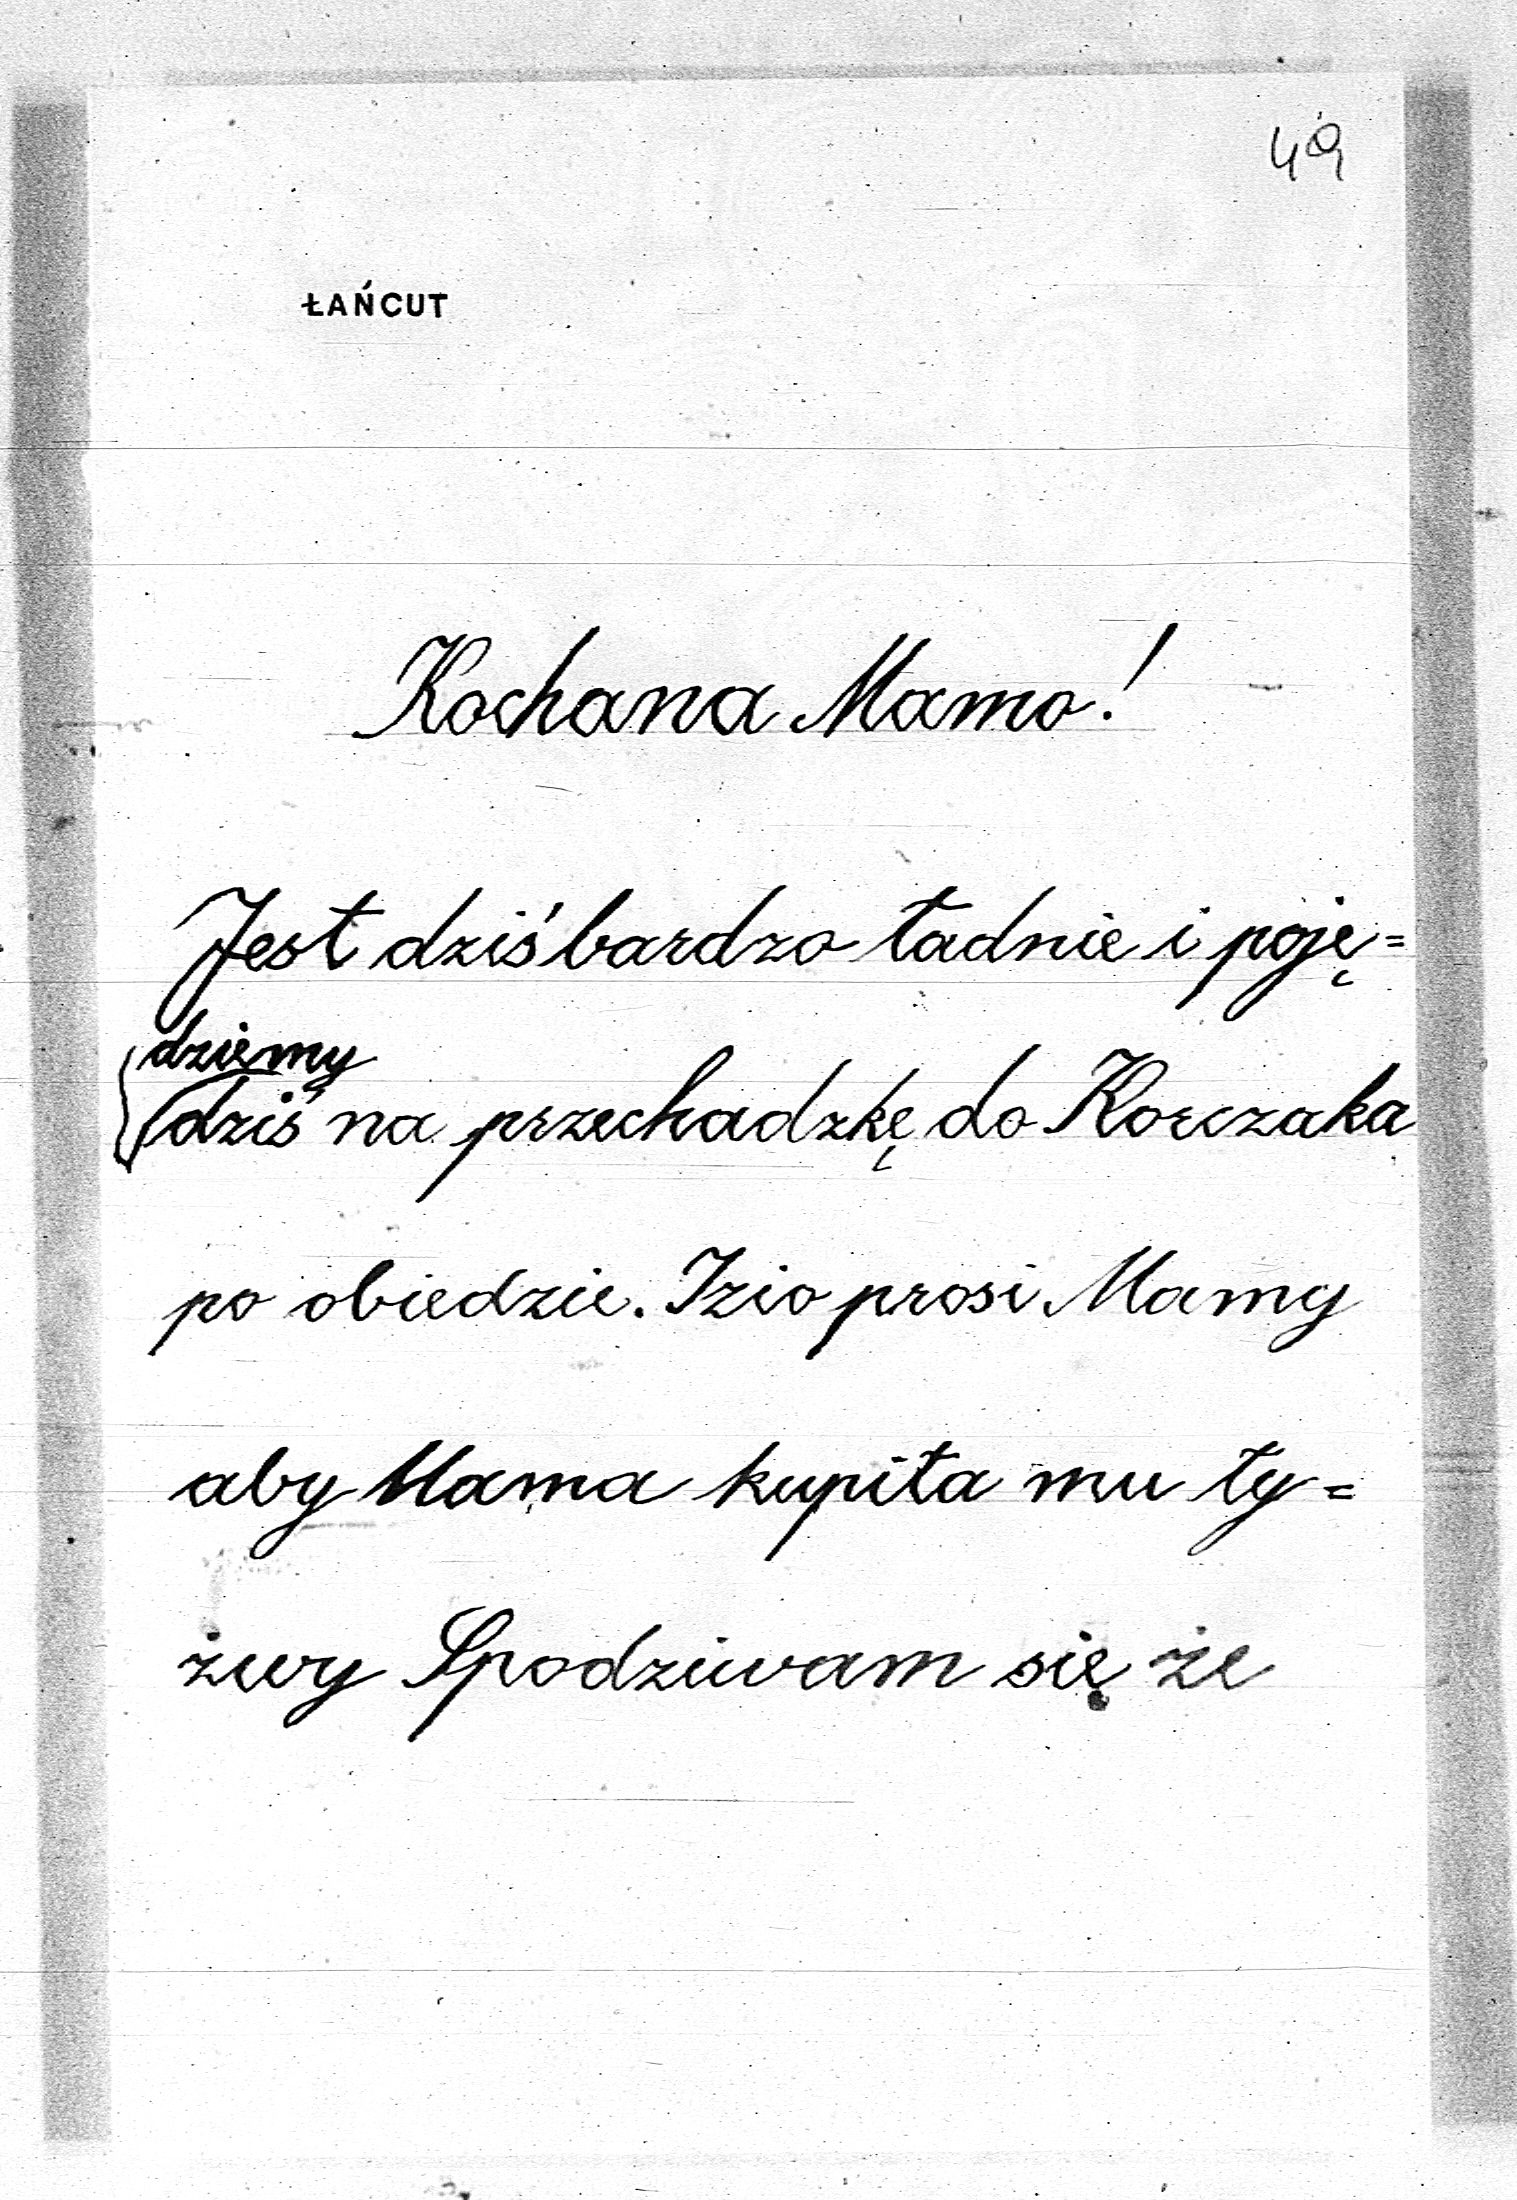 49
ŁAŃCUT
Kochana Mamo!
Jest dziś bardzo ładnie i poję=
dziemy
dziś na przechadzkę do Korczaka
po obiedzie. Izio prosi Mamy
aby Mama kupiła mu ły=
żwy Spodziwam się że